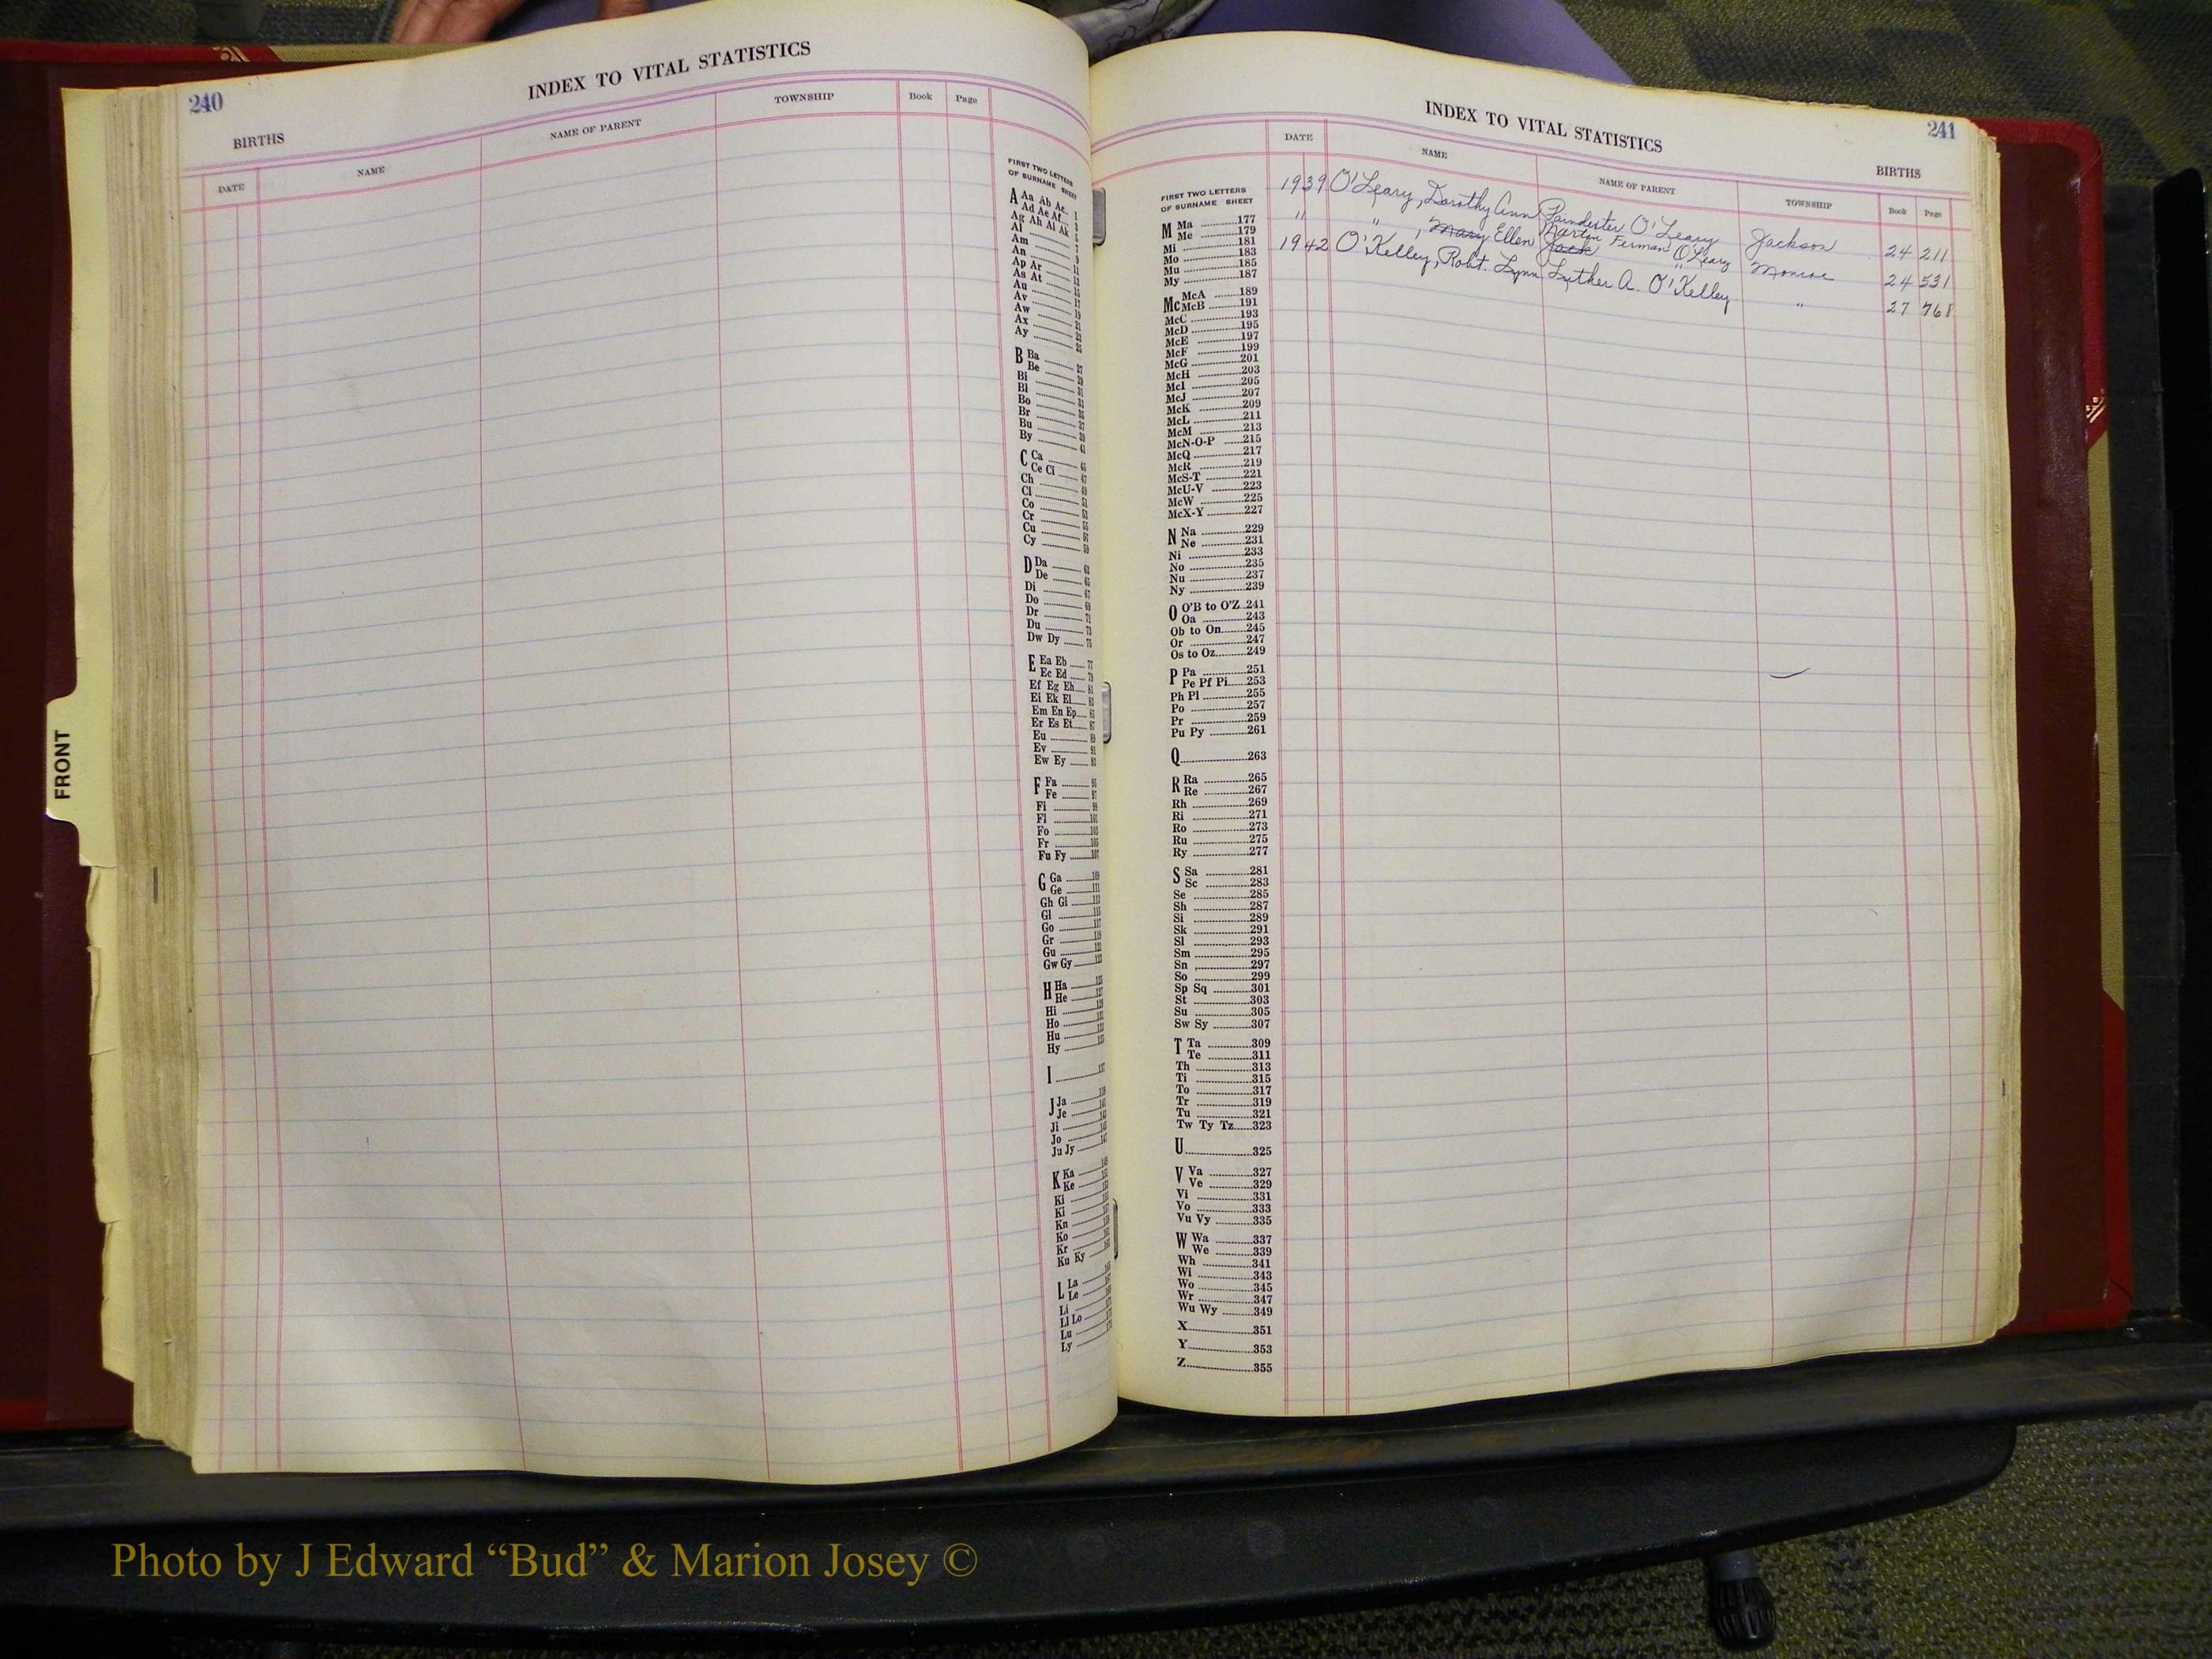 240
INDEX TO VITAL STATISTICS
BIRTHS
DATE NAME NAME OF PARENT TOWNSHIP Book Page
FIRST TWO LETTERS
OF SURNAME SHEET
A Aa Ab Ac
Ad Ae Af
Ag Ah Ai Ak
Al
Am
An
Ap Ar
As At
Au
Av
Aw
Ax
Ay
B Ba
Be
Bi
Bl
Bo
Br
Bu
By
C Ca
Ce Ci
Ch
Cl
Co
Cr
Cu
Cy
D Da
De
Di
Do
Dr
Du
Dw Dy
E Ea Eb
Ec Ed
Ef Eg Eh
Ei Ek El
Em En Ep
Er Es Et
Eu
Ev
Ew Ey
F Fa
Fe
Fi
Fl
Fo
Fr
Fu Fy
G Ga
Ge
Gh Gi
Gl
Go
Gr
Gu
Gw Gy
H Ha
He
Hi
Ho
Hu
Hy
I
J Ja
Je
Ji
Jo
Ju Jy
K Ka
Ke
Ki
Kl
Kn
Ko
Kr
Ku Ky
L La
Le
Li
Ll Lo
Lu
Ly
241
INDEX TO VITAL STATISTICS
BIRTHS
DATE NAME NAME OF PARENT TOWNSHIP Book Page
1939 O'Leary, Dorothy Ann Poindexter O'Leary Jackson 24 211
" " , Mary Ellen Jack Martin Furman O'Leary Monroe 24 531
1942 O'Kelley, Robt. Lynn Luther A. O'Kelley " 27 768
FIRST TWO LETTERS
OF SURNAME SHEET
M Ma 177
Me 179
Mi 181
Mo 183
Mu 185
My 187
Mc McA 189
McB 191
McC 193
McD 195
McE 197
McF 199
McG 201
McH 203
McI 205
McJ 207
McK 209
McL 211
McM 213
McN-O-P 215
McQ 217
McR 219
McS-T 221
McU-V 223
McW 225
McX-Y 227
N Na 229
Ne 231
Ni 233
No 235
Nu 237
Ny 239
O O'B to O'Z 241
Oa 243
Ob to On 245
Or 247
Os to Oz 249
P Pa 251
Pe Pf Pi 253
Ph Pl 255
Po 257
Pr 259
Pu Py 261
Q 263
R Ra 265
Re 267
Rh 269
Ri 271
Ro 273
Ru 275
Ry 277
S Sa 281
Sc 283
Se 285
Sh 287
Si 289
Sk 291
Sl 293
Sm 295
Sn 297
So 299
Sp Sq 301
St 303
Su 305
Sw Sy 307
T Ta 309
Te 311
Th 313
Ti 315
To 317
Tr 319
Tu 321
Tw Ty Tz 323
U 325
V Va 327
Ve 329
Vi 331
Vo 333
Vu Vy 335
W Wa 337
We 339
Wh 341
Wi 343
Wo 345
Wr 347
Wu Wy 349
X 351
Y 353
Z 355
FRONT
Photo by J Edward “Bud” & Marion Josey ©